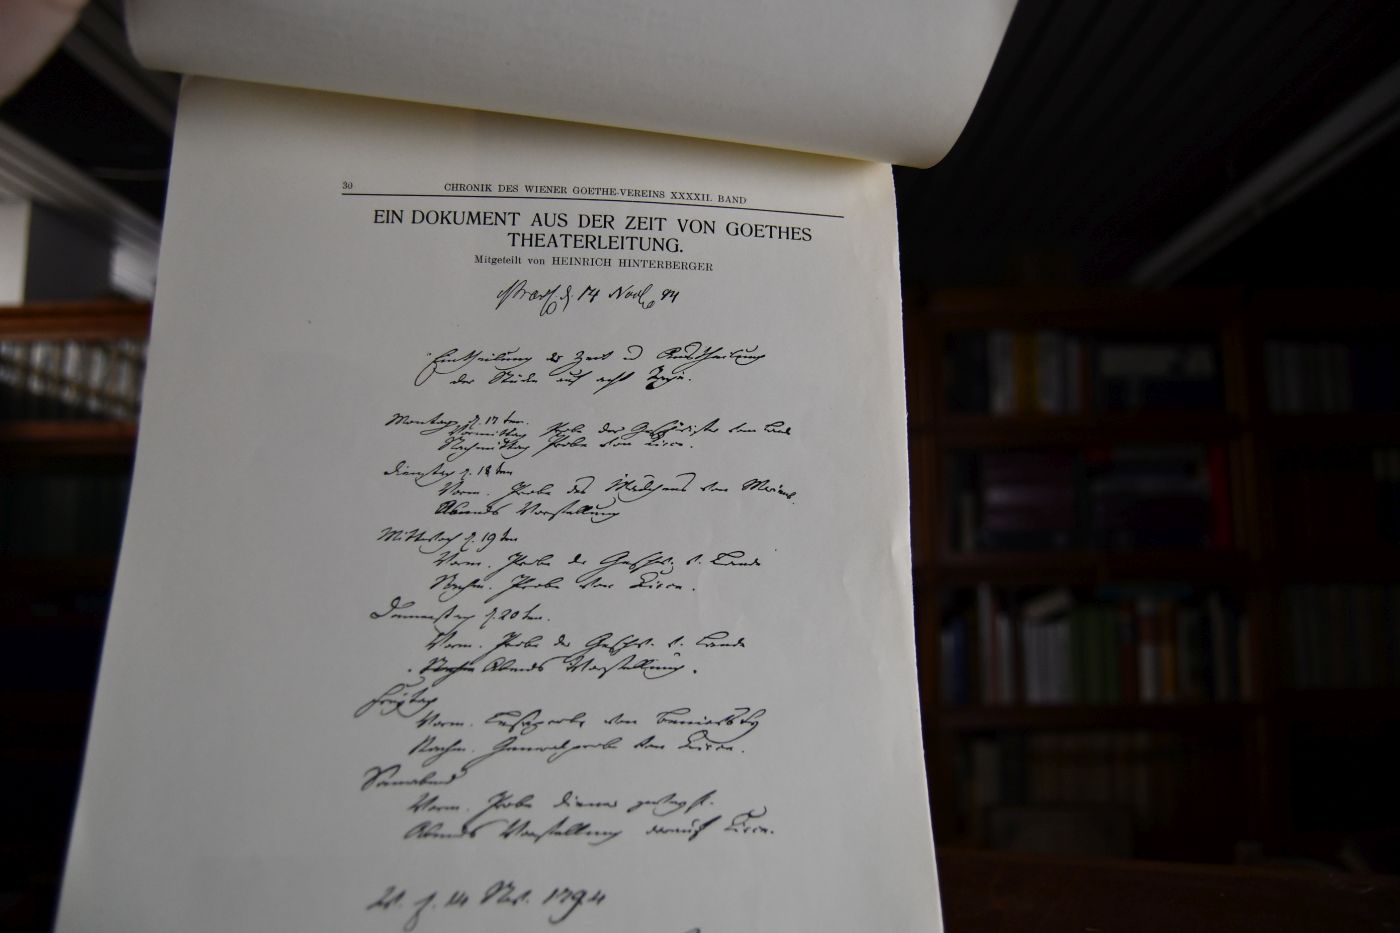 30
CHRONIK DES WIENER GOETHE-VEREINS XXXXII. BAND
EIN DOKUMENT AUS DER ZEIT VON GOETHES
THEATERLEITUNG.
Mitgeteilt von HEINRICH HINTERBERGER
d. 14 94
Eintheilung der Zeit u Austheilung
der Stücke auf acht Tage.
Montag d. 17 ten.
Vormittag Probe der Geschwister vom Lande
Nachmittag Probe von
Dienstag d. 18 ten
Vorm. Probe des Mädchens von Marienb.
Abends Vorstellung
Mittwoch d. 19 ten
Vorm. Probe der Geschw. v. Lande
Nachm. Probe von
Donnerstag d. 20 ten.
Vorm. Probe der Geschw. v. Lande
Abends Vorstellung.
Freytag
Vorm. Leseprobe von
Nachm. Generalprobe von
Sonnabend
Vorm. Probe
Abends Vorstellung
W. d. 14 Nov. 1794